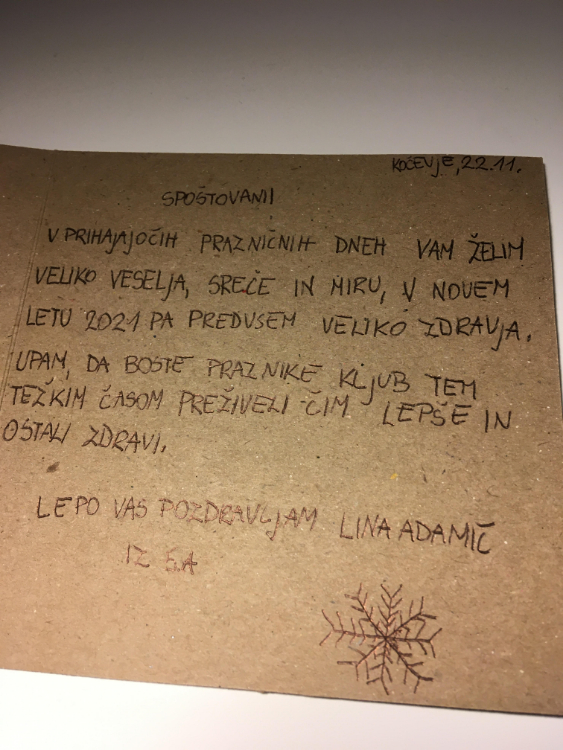 KOČEVJE, 22.11.
SPOŠTOVANI!
V PRIHAJAJOČIH PRAZNIČNIH DNEH VAM ŽELIM
VELIKO VESELJA, SREČE IN MIRU, V NOVEM
LETU 2021 PA PREDVSEM VELIKO ZDRAVJA.
UPAM, DA BOSTE PRAZNIKE KLJUB TEM
TEŽKIM ČASOM PREŽIVELI ČIM LEPŠE IN
OSTALI ZDRAVI.
LEPO VAS POZDRAVLJAM LINA ADAMIČ
IZ 5.A